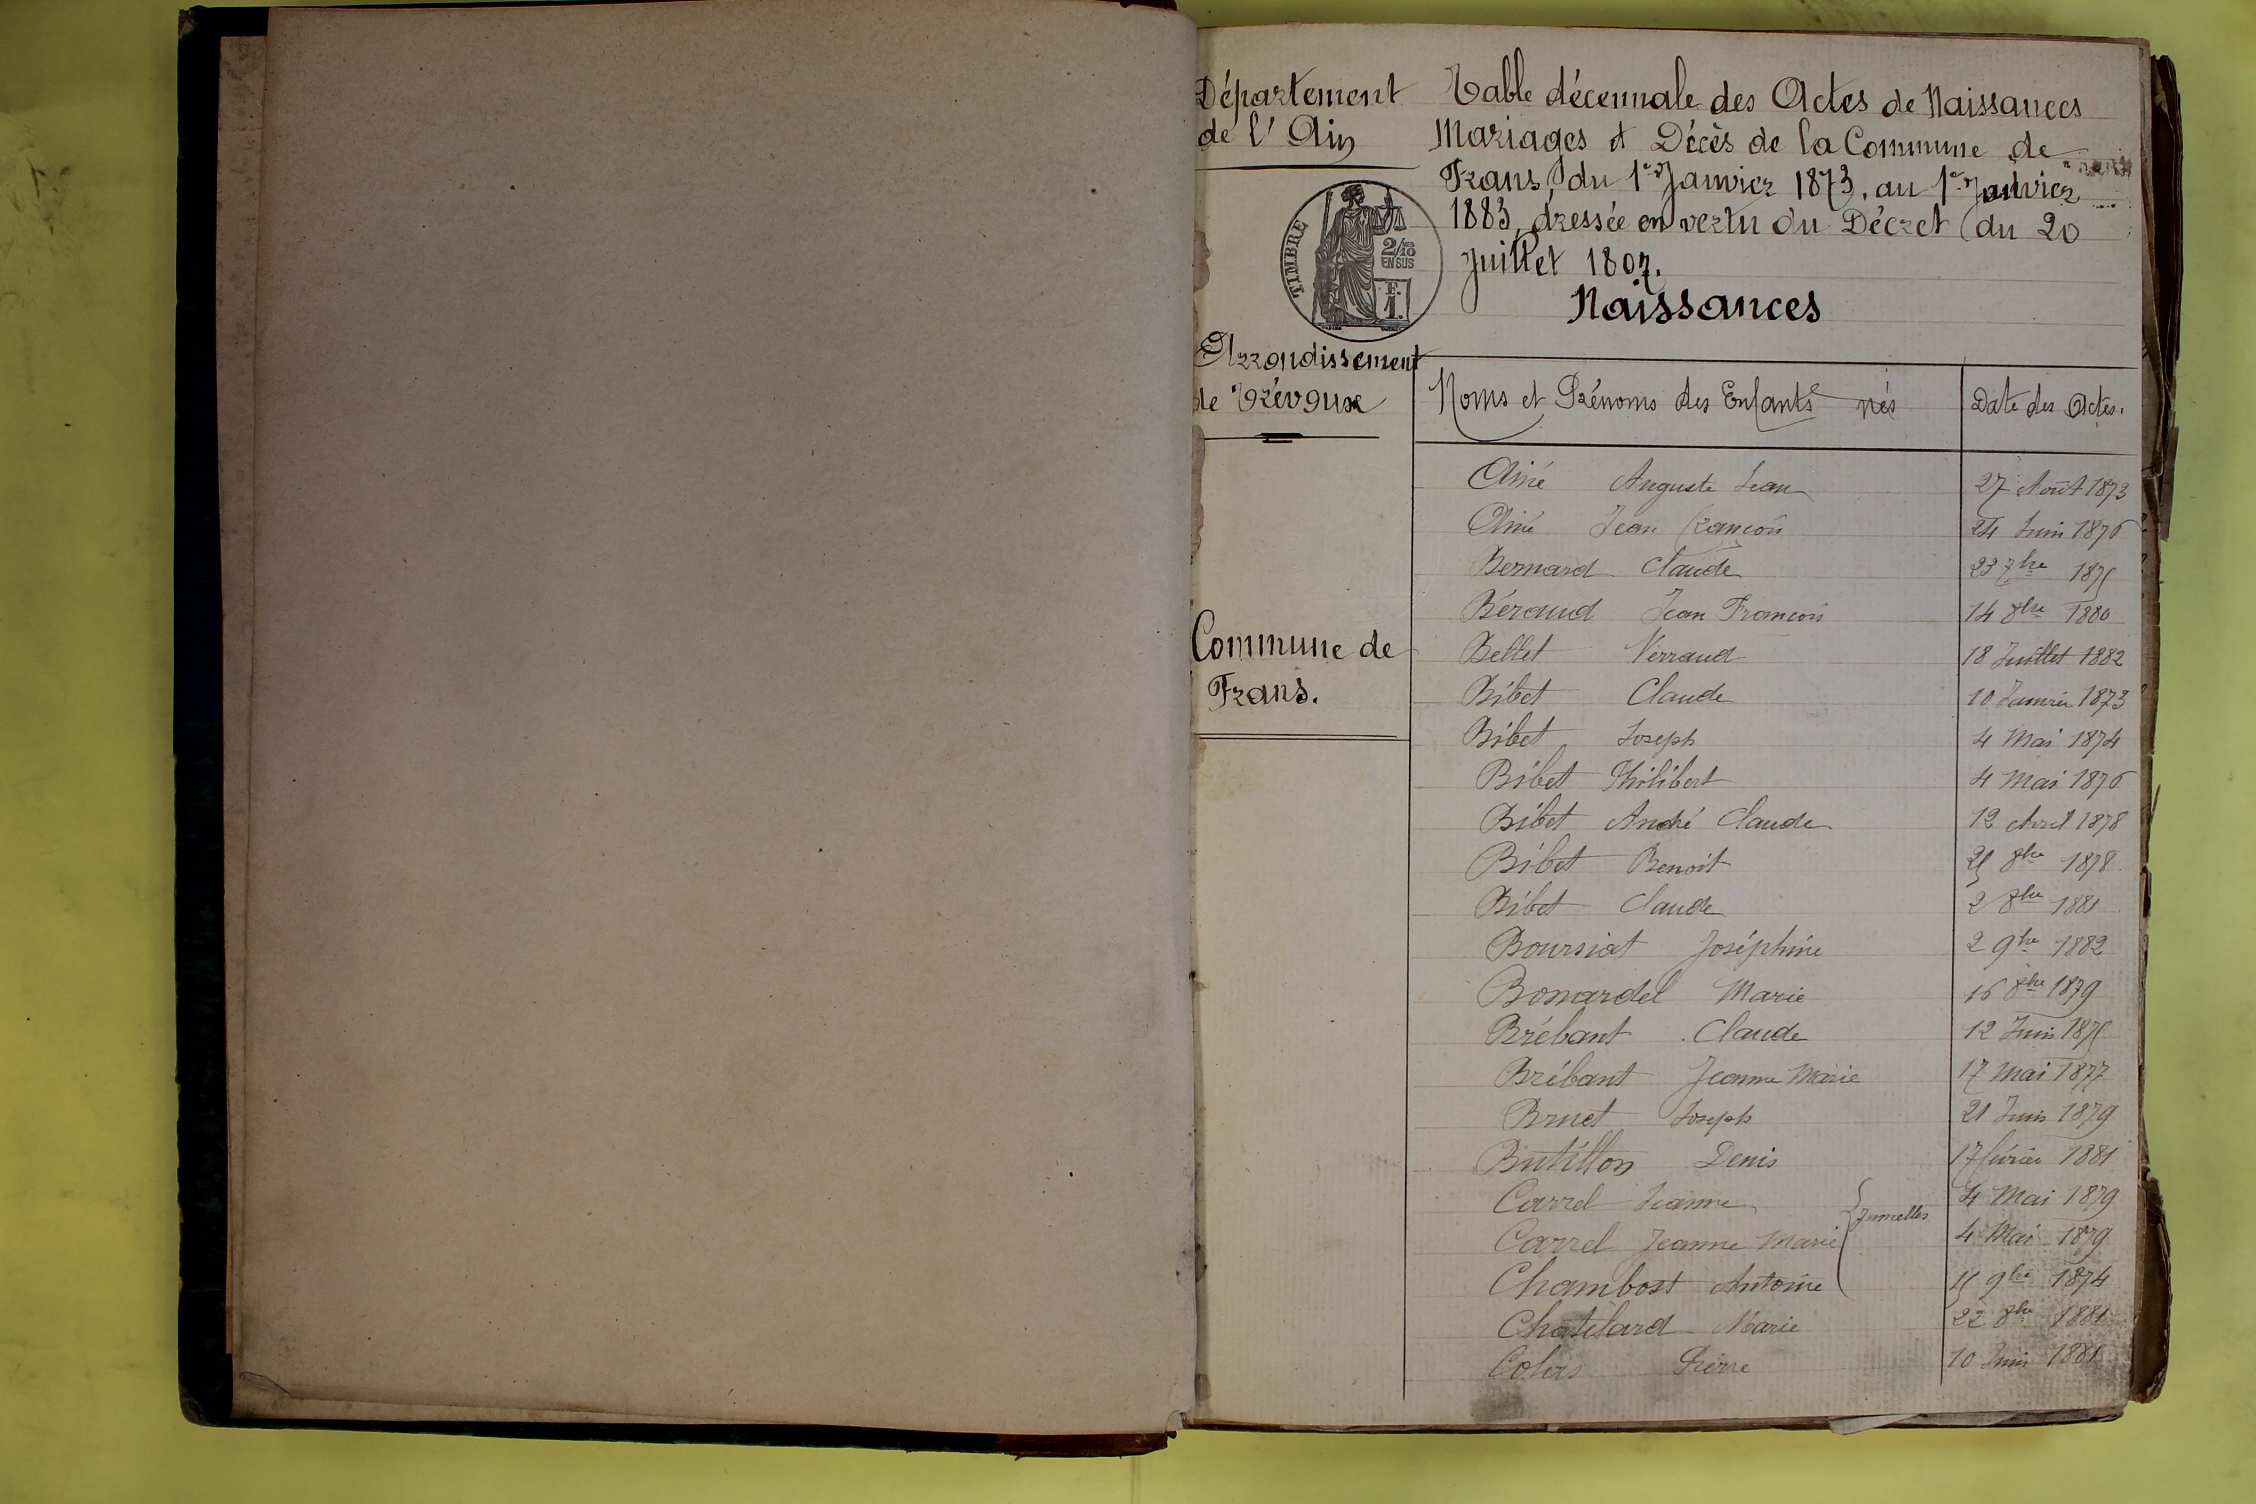 Département
de l'Ain
TIMBRE
2/10
EN SUS
F.
1.
Arrondissement
de Trévoux
Commune de
Frans.
Table décennale des Actes de Naissances
Mariages et Décès de la Commune de
Frans, du 1er Janvier 1873, au 1er Janvier
1883, dressée en vertu du Décret du 20
Juillet 1807.
Naissances
Noms et Prénoms des Enfants nés Date des Actes.
Ainé Auguste Jean 27 Août 1873
Ainé Jean François 24 Juin 1876
Bernard Claude 23 7bre 1875
Béraud Jean François 14 8bre 1880
Bettet Verraud 18 Juillet 1882
Bibet Claude 10 Janvier 1873
Bibet Joseph 4 Mai 1874
Bibet Philibert 4 Mai 1876
Bibet André Claude 12 Avril 1878
Bibet Benoit 25 8bre 1878
Bibet Claude 2 8bre 1881
Boursiat Joséphine 2 9bre 1882
Bonnardel Marie 16 8bre 1879
Brébant Claude 12 Juin 1875
Brébant Jeanne Marie 17 Mai 1877
Bruet Joseph 21 Juin 1879
Butillon Denis 17 février 1881
Carrel Jeanne 4 Mai 1879
Jumelles
Carrel Jeanne Marie 4 Mai 1879
Chambost Antoine 15 9bre 1874
Chatelard Marie 22 8bre 1881
Colas Pierre 10 Juin 1881